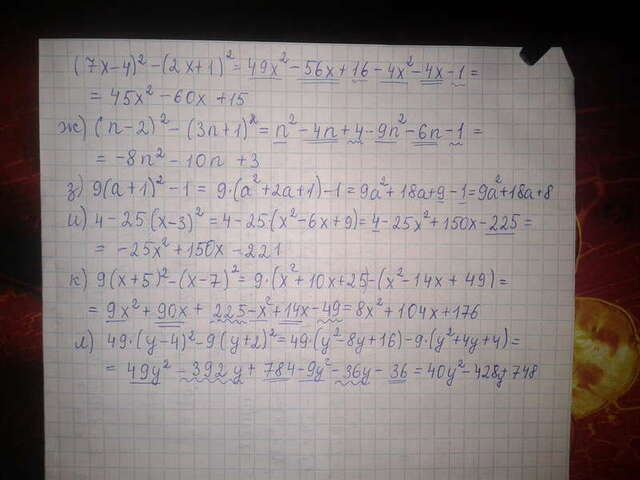 (7x-4)²-(2x+1)²=49x²-56x+16-4x²-4x-1=
=45x²-60x+15
ж) (n-2)²-(3n+1)²=n²-4n+4-9n²-6n-1=
=-8n²-10n+3
з) 9(a+1)²-1=9·(a²+2a+1)-1=9a²+18a+9-1=9a²+18a+8
и) 4-25(x-3)²=4-25(x²-6x+9)=4-25x²+150x-225=
=-25x²+150x-221
к) 9(x+5)²-(x-7)²=9·(x²+10x+25)-(x²-14x+49)=
=9x²+90x+225-x²+14x-49=8x²+104x+176
л) 49·(y-4)²-9(y+2)²=49·(y²-8y+16)-9·(y²+4y+4)=
=49y²-392y+784-9y²-36y-36=40y²-428y+748